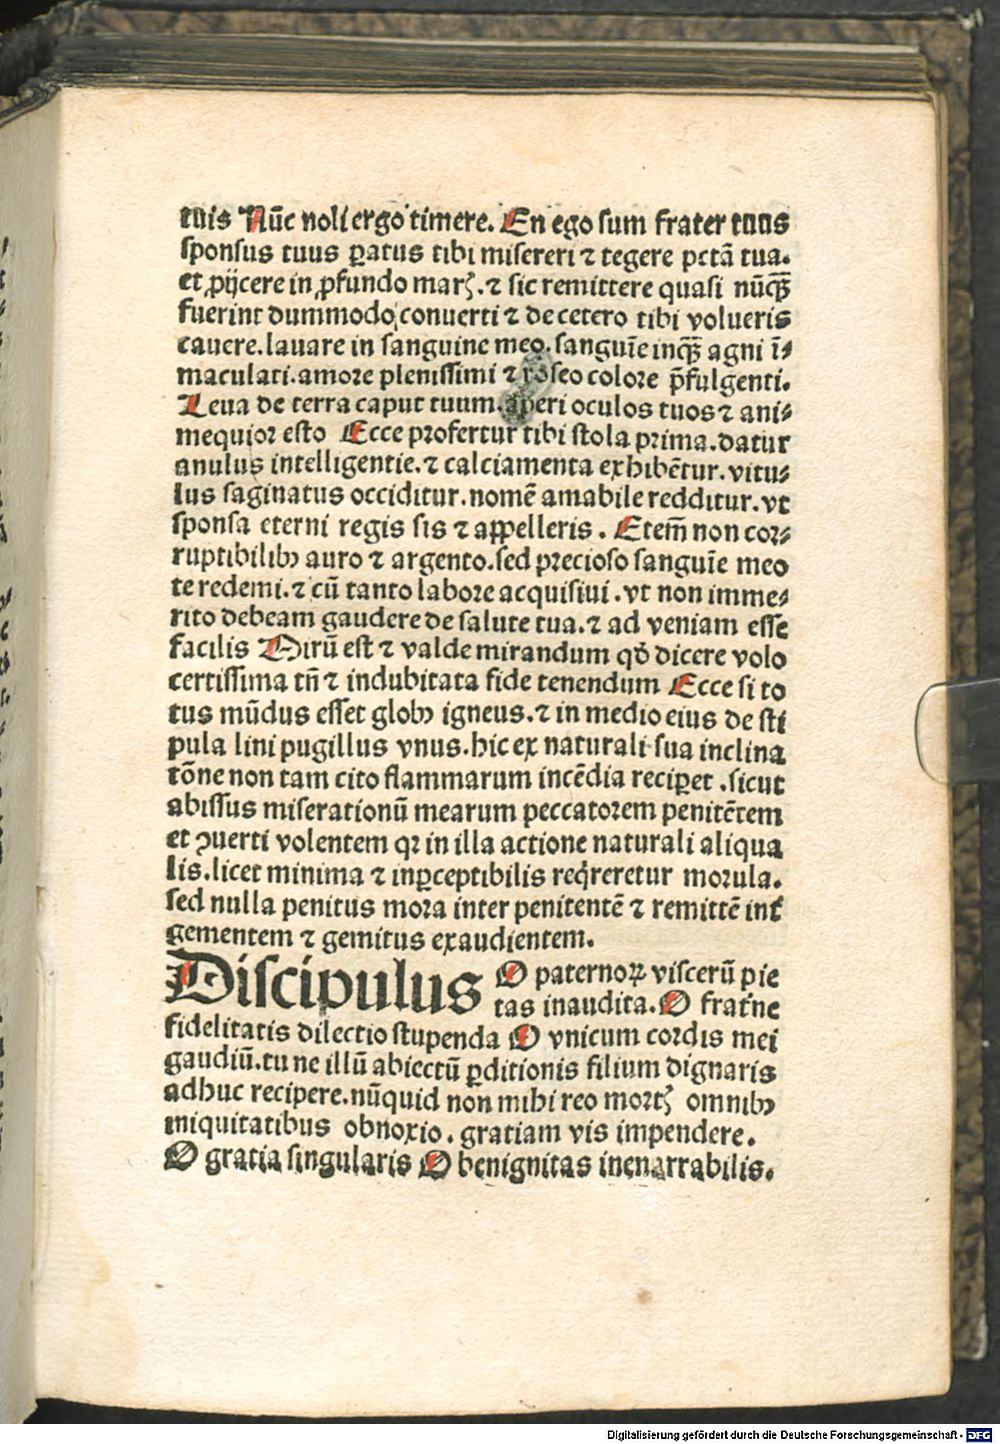 tuis Nūc noli ergo timere. En ego sum frater tuus
sponsus tuus ꝑatus tibi misereri ⁊ tegere pctā tua.
et ꝓijcere in ꝓfundo marꝭ. ⁊ sic remittere quasi nūcꝙ̄
fuerint dummodo conuerti ⁊ de cetero tibi volueris
cauere. lauare in sanguine meo. sanguīe inqꝫ̄ agni ī⸗
maculati. amore plenissimi ⁊ roseo colore p̄fulgenti.
Leua de terra caput tuum. aperi oculos tuos ⁊ ani⸗
mequior esto Ecce profertur tibi stola prima. datur
anulus intelligentie. ⁊ calciamenta exhibētur. vitu⸗
lus saginatus occiditur. nomē amabile redditur. vt
sponsa eterni regis sis ⁊ appelleris. Etem̄ non cor⸗
ruptibilibꝫ auro ⁊ argento. sed precioso sanguīe meo
te redemi. ⁊ cū tanto labore acquisiui. vt non imme⸗
rito debeam gaudere de salute tua. ⁊ ad veniam esse
facilis Mirū est ⁊ valde mirandum qd̄ dicere volo
certissima tn̄ ⁊ indubitata fide tenendum Ecce si to
tus mūdus esset globꝫ igneus. ⁊ in medio eius de sti
pula lini pugillus vnus. hic ex naturali sua inclina
tōne non tam cito flammarum incēdia reciꝑet. sicut
abissus miserationū mearum peccatorem penitētem
et ꝯuerti volentem qꝛ in illa actione naturali aliqua
lis. licet minima ⁊ inꝑceptibilis reqͥreretur morula.
sed nulla penitus mora inter penitentē ⁊ remittē int̄
gementem ⁊ gemitus exaudientem.
Discipulus O paternoꝝ viscerū pie
tas inaudita. O frat̄ne
fidelitatis dilectio stupenda O vnicum cordis mei
gaudiū. tu ne illū abiectū ꝑditionis filium dignaris
adhuc recipere. nūquid non mihi reo mortꝭ omnibꝫ
iniquitatibus obnoxio. gratiam vis impendere.
O gratia singularis O benignitas inenarrabilis.
Digitalisierung gefördert durch die Deutsche Forschungsgemeinschaft - DFG